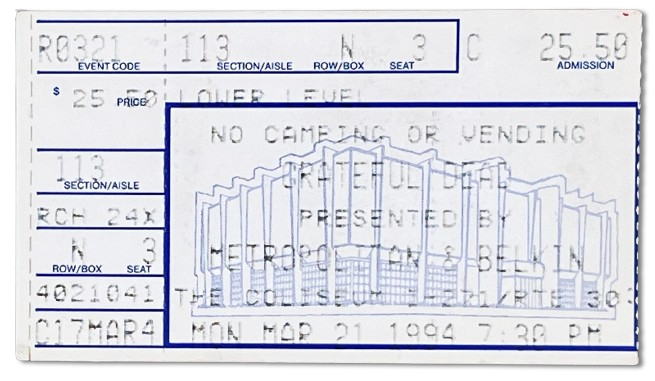 R0321 113 N 3 C 25.50
EVENT CODE SECTION/AISLE ROW/BOX SEAT ADMISSION
$ 25.50 LOWER LEVEL
PRICE
NO CAMPING OR VENDING
113 GRATEFUL DEAD
SECTION/AISLE
RCH 24X PRESENTED BY
N 3 METROPOLITAN & BELKIN
ROW/BOX SEAT
4021041 THE COLISEUM I-271/RTE 303
C17MAR4 MON MAR 21 1994 7:30 PM